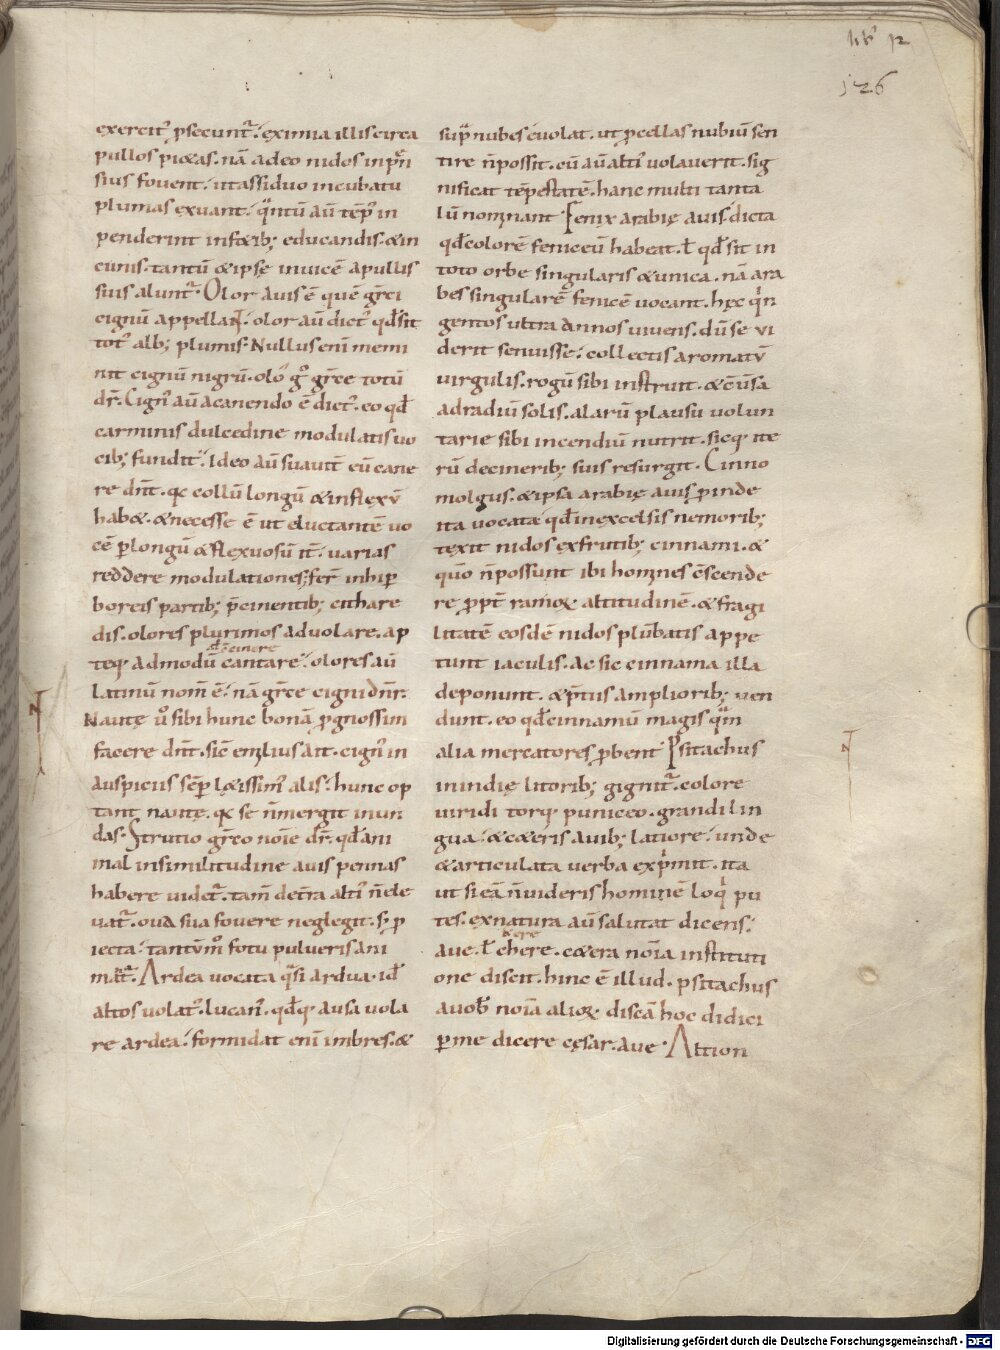 lib' 12
126
exercit' ꝑsecunt᷑. eximia illis circa
pullos pi&as. nā adeo nidos inpn̄
sius fouent. ut assiduo incubatu
plumas exuant. qͣntū aū tēp' in
penderint in fœtib; educandis. & in
cunis. tantū & ipsę inuicē a pullis
suis alunt᷑. Olor auis ē quē gręci
cignū appellaNt. olor aū dict' qđ sit
tot' alb; plumis. Nullus eni memi
nit cignū nigrū. olo' g° gręce totū
dr̄. Cign' aū a canendo ē dict'. eo qđ
carminis dulcedine modulatis uo
cib; fundit᷑. Ideo aū suauit̄ eū cane
re dn̄t. qꝛ collū longū & inflexū
hab&. & necesse ē ut eluctantē uo
cē ꝑ longū & flexuosū it̄. uarias
reddere modulationes; fer̄ in hiꝑ
boreis partib; p̄cinentib; cithare
dis. olores plurimos aduolare. ap
teq; admodū cantare. olores aū
cinere
latinū nom̄ ē. nā gręce cigni dn̄r.
Nautę ū sibi hunc bonā ꝓgnossim
facere dn̄t. sic̄ emilius ait. cign' in
auspiciis sēꝑ l&issim' alis. hunc op
tant nautę. qꝛ se n̄ mergit in un
das. Strutio gręco noīe dr̄. qđ ani
mal in similitudine auis pennas
habere uidet᷑. tam̄ de tr̄a alti' n̄ ele
uat᷑. oua sua fouere neglegit. s; ꝓ
iecta. tantūm° fotu pulueris ani
mat᷑. Ardea uocata qͣsi ardua. id
altos uolat'. lucan'. qđq; ausa uola
re ardea. formidat eni imbres. &
supͣ nubes euolat. ut ꝓcellas nubiū sen
tire n̄ possit. cū aū alti' uolauerit. sig
nificat tēpestatē. hanc multi tanta
lū nominant Fenix arabię auis. dicta
qđ colorē feniceū habeat. ł qđ sit in
toto orbe singularis & unica. nā ara
bes singularē fenicē uocant. hęc qin
gentos ultra annos uiuens. dū se ui
derit senuisse. collectis aromatū
uirgulis. rogū sibi instruit. & cūsa
ad radiū solis. alarū plausu uolun
tarie sibi incendiū nutrit. sicq; ite
rū de cinerib; suis resurgit. Cinno
molgus. & ipsa arabię auis ꝓinde
ita uocata qđ in excelsis nemorib;
texit nidos ex frutib; cinnami. &
quō n̄ possunt ibi homines cscende
re ꝓpt̄ ramoꝝ altitudinē. & fragi
litatē eosdē nidos plūbatis appe
tunt iaculis. ac sic cinnama illa
deponunt. & p̄tiis ampliorib; uen
dunt. eo qđ cinnamū magis qͣm
alia mercatores ꝓbent Psitachus
in indię litorib; gignit᷑. colore
uiridi torq; puniceo. grandi lin
gua. & c&eris auib; latiore. unde
& articulata uerba expͥmit. ita
ut si eā n̄ uideris hominē loqͥ pu
tes. ex natura aū salutat dicens.
kere
aue. ł chere. c&era noīa instituti
one discit. hinc ē illud. psitachus
a uob' noīa alioꝝ discā hoc didici
ꝑ me dicere cęsar. aue. Altion